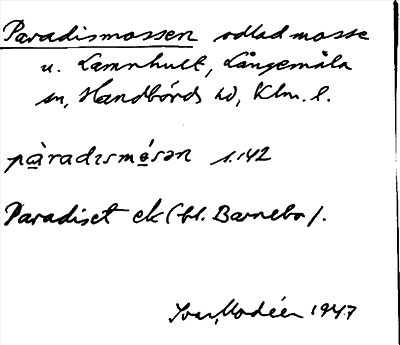 Paradismossen odlad mosse
u. Lamnhult, Långemåla
sn, Handbörds hd, Klm. l.
pàradısmósən s. 142
Paradiset ek (bl. Barnebo).
Ivar Modéer 1947